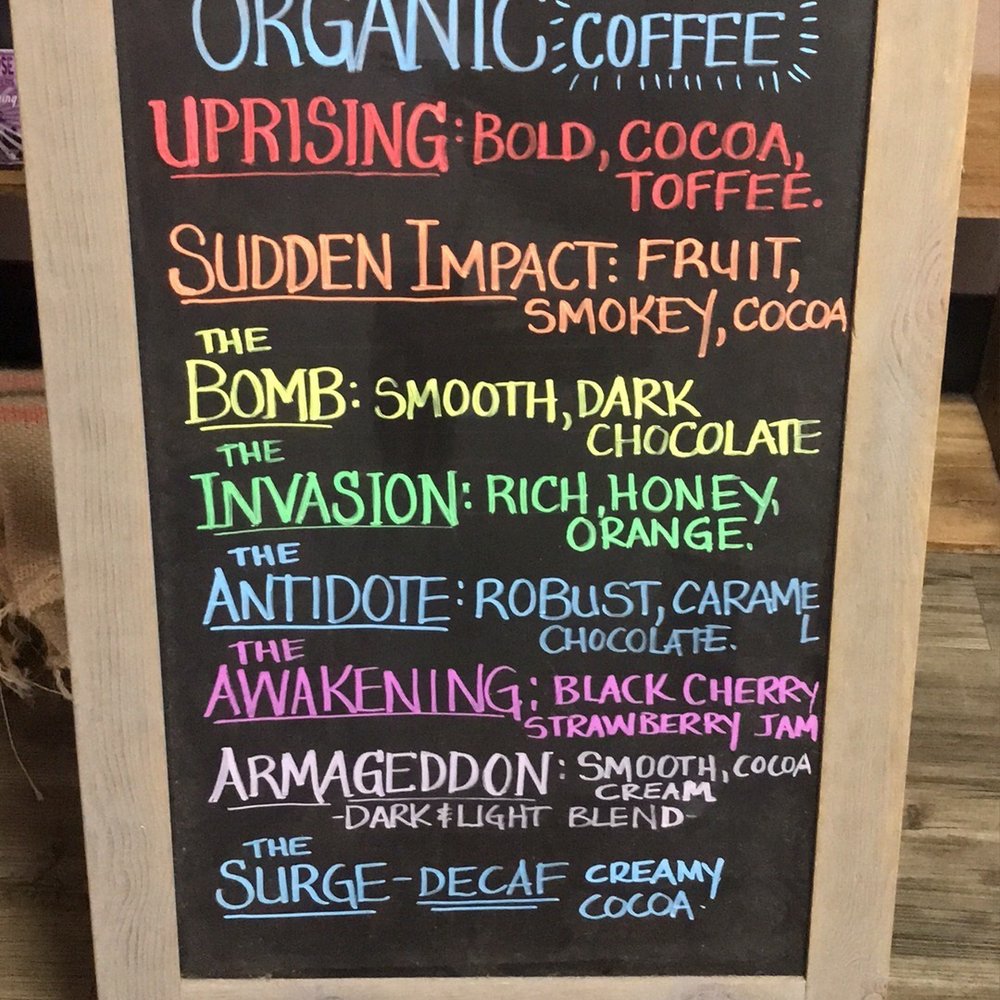 ORGANIC COFFEE
UPRISING: BOLD, COCOA,
TOFFEE.
SUDDEN IMPACT: FRUIT,
SMOKEY, COCOA
THE
BOMB: SMOOTH, DARK
CHOCOLATE
THE
INVASION: RICH, HONEY,
ORANGE.
THE
ANTIDOTE: ROBUST, CARAMEL
CHOCOLATE.
THE
AWAKENING: BLACK CHERRY
STRAWBERRY JAM
ARMAGEDDON: SMOOTH, COCOA
CREAM
-DARK & LIGHT BLEND-
THE
SURGE-DECAF CREAMY
COCOA.